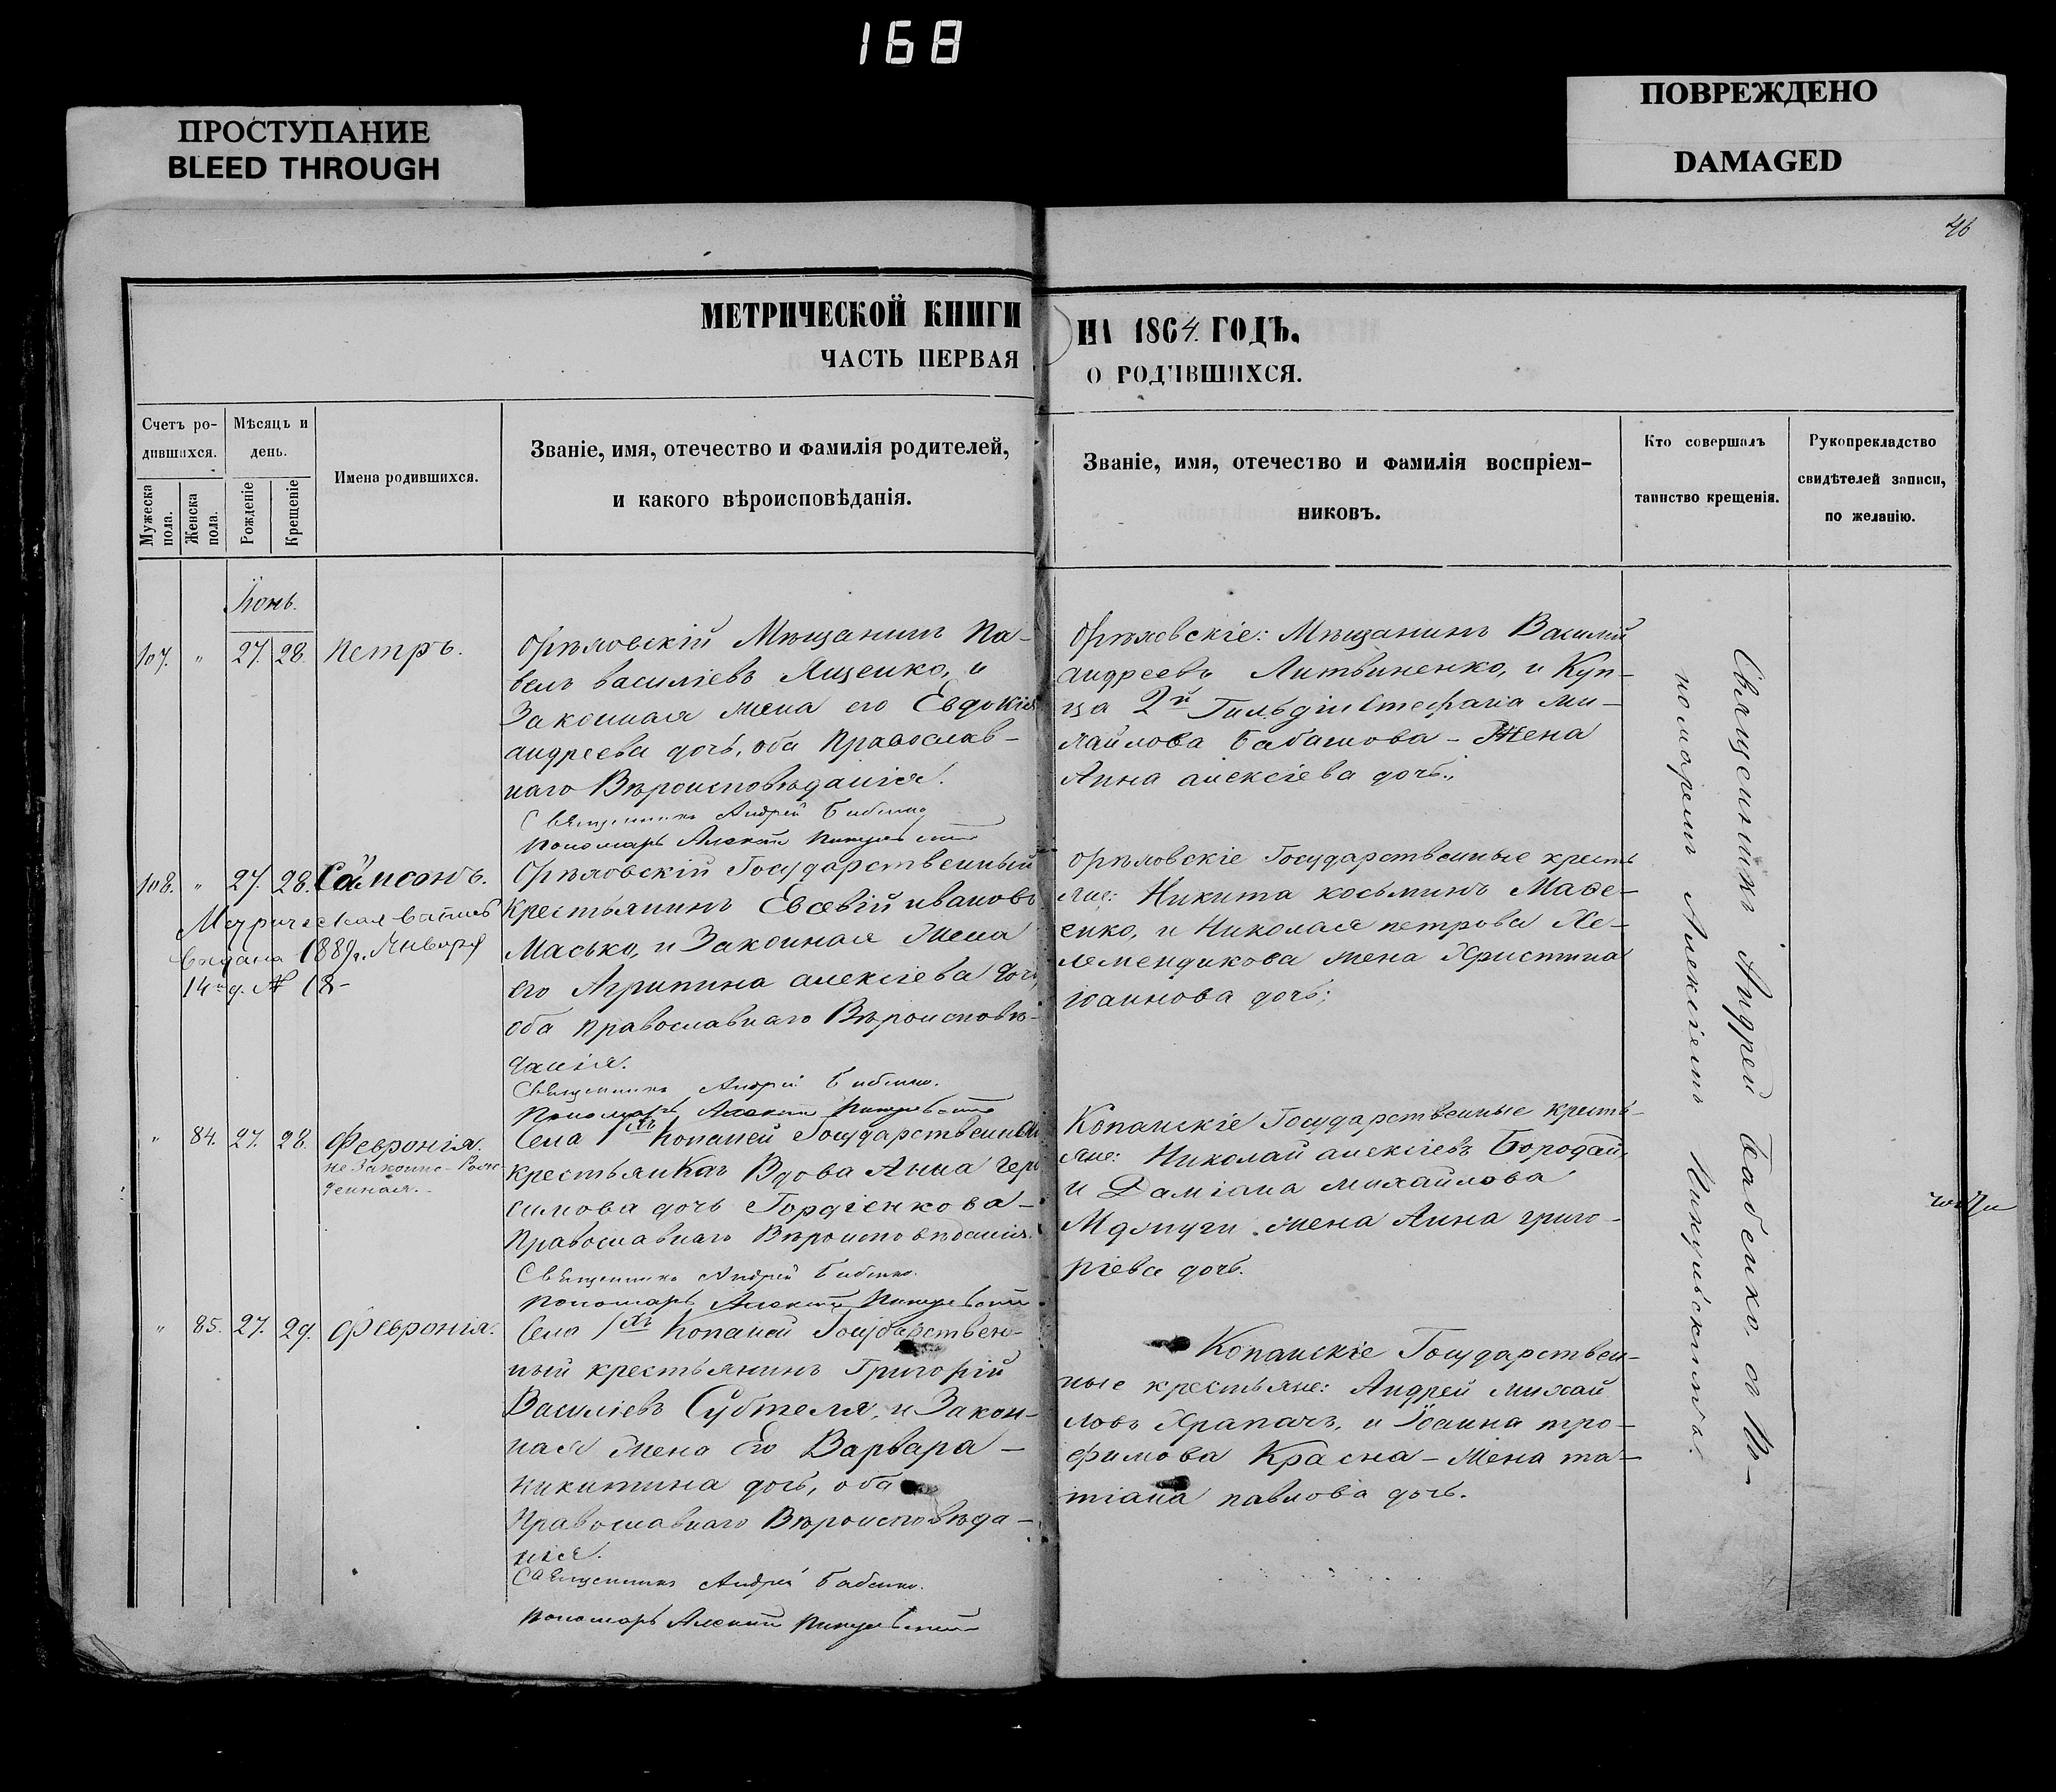 168
ПРОСТУПАНИЕ
BLEED THROUGH
ПОВРЕЖДЕНО
DAMAGED
46
МЕТРИЧЕСКОЙ КНИГИ
ЧАСТЬ ПЕРВАЯ
НА 1864. ГОДЪ.
О РОДИВШИХСЯ.
Счетъ ро-
дившихся.
Мужеска пола.
Женска пола.
Мѣсяцъ и
день.
Рожденіе
Крещеніе
Имена родившихся.
Званіе, имя, отечество и фамилія родителей,
и какого вѣроисповѣданія.
Званіе, имя, отечество и фамилія воспріем-
никовъ.
Кто совершалъ
таинство крещенія.
Рукопрекладство
свидѣтелей записи,
по желанію.
Іюнь.
107. " 27. 28. Петръ.
Орѣховскій Мѣщанинъ Па-
велъ Василіевъ Ященко, и
Законная жена его Евдокія
андреева дочь, оба Православ-
наго Вѣроисповѣданія.
Священникъ Андрей Бабенко
Пономарь Алексій Пикульскій
Орѣховскіе: Мѣщанинъ Василій
андреевъ Литвиненко, и Куп-
ца 2й Гильдіи Стефана Ми-
хайлова Бабашова - Жена
Анна алексіева дочь.,
108. " 27. 28. Сампсонъ.
Метрическая выпись
выдана 1889г. Января
14 д. № 18-
Орѣховскій Государственный
крестьянинъ Евсевій ивановъ
Масько, и Законная Жена
его Агрипина алексіева дочь,
оба православнаго Вѣроисповѣ-
данія.
Священникъ Андрей Бабенко.
Пономарь Алексій Пикульскій
Орѣховскіе Государственные кресть
яне: Никита косьминъ
и Николая петрова
жена Христина
іоаннова дочь;
" 84. 27. 28. Февронія.
не Законно-Рож-
денная.
Села 1хъ Копаней Государственная
крестьянка Вдова Анна Гера
симова дочь Гордіенкова -
Православнаго Вѣроисповѣданія.
Священникъ Андрей Бабенко.
Пономарь Алексій Пикульскій
Копанскіе Государственные кресть-
яне: Николай алексіевъ Бородай,
и Даміана михайлова
жена Анна григо-
ріева дочь.
" 85. 27. 29. Февронія.
Села 1хъ Копаней Государствен-
ный крестьянинъ Григорій
Василіевъ Субтеля, и Закон-
ная Жена Его Варвара -
никитина дочь, оба
Православнаго Вѣроисповѣда-
нія.
Священникъ Андрей Бабенко.
Пономарь Алексій Пикульскій
Копанскіе Государствен-
ные крестьяне: Андрей михай
ловъ Храпачъ, и Іоанна тро-
фимова Красна - Жена та-
тіана павлова дочь.
Священникъ Андрей Бабенко, съ По-
номаремъ Алексіемъ Пикульскимъ.